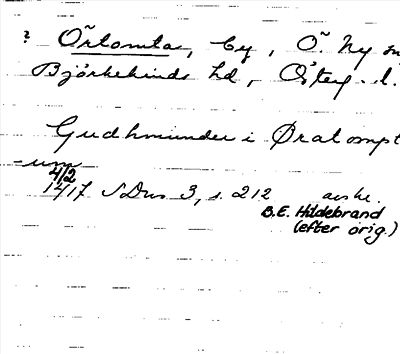 ? Örtomta, by, Ö. Ny sn
Björkekinds hd, Österg. l.
Gudhmunder i Øratompt
-um
4/2
1417 SDns 3, s. 212 avskr.
B.E. Hildebrand
(efter orig.)